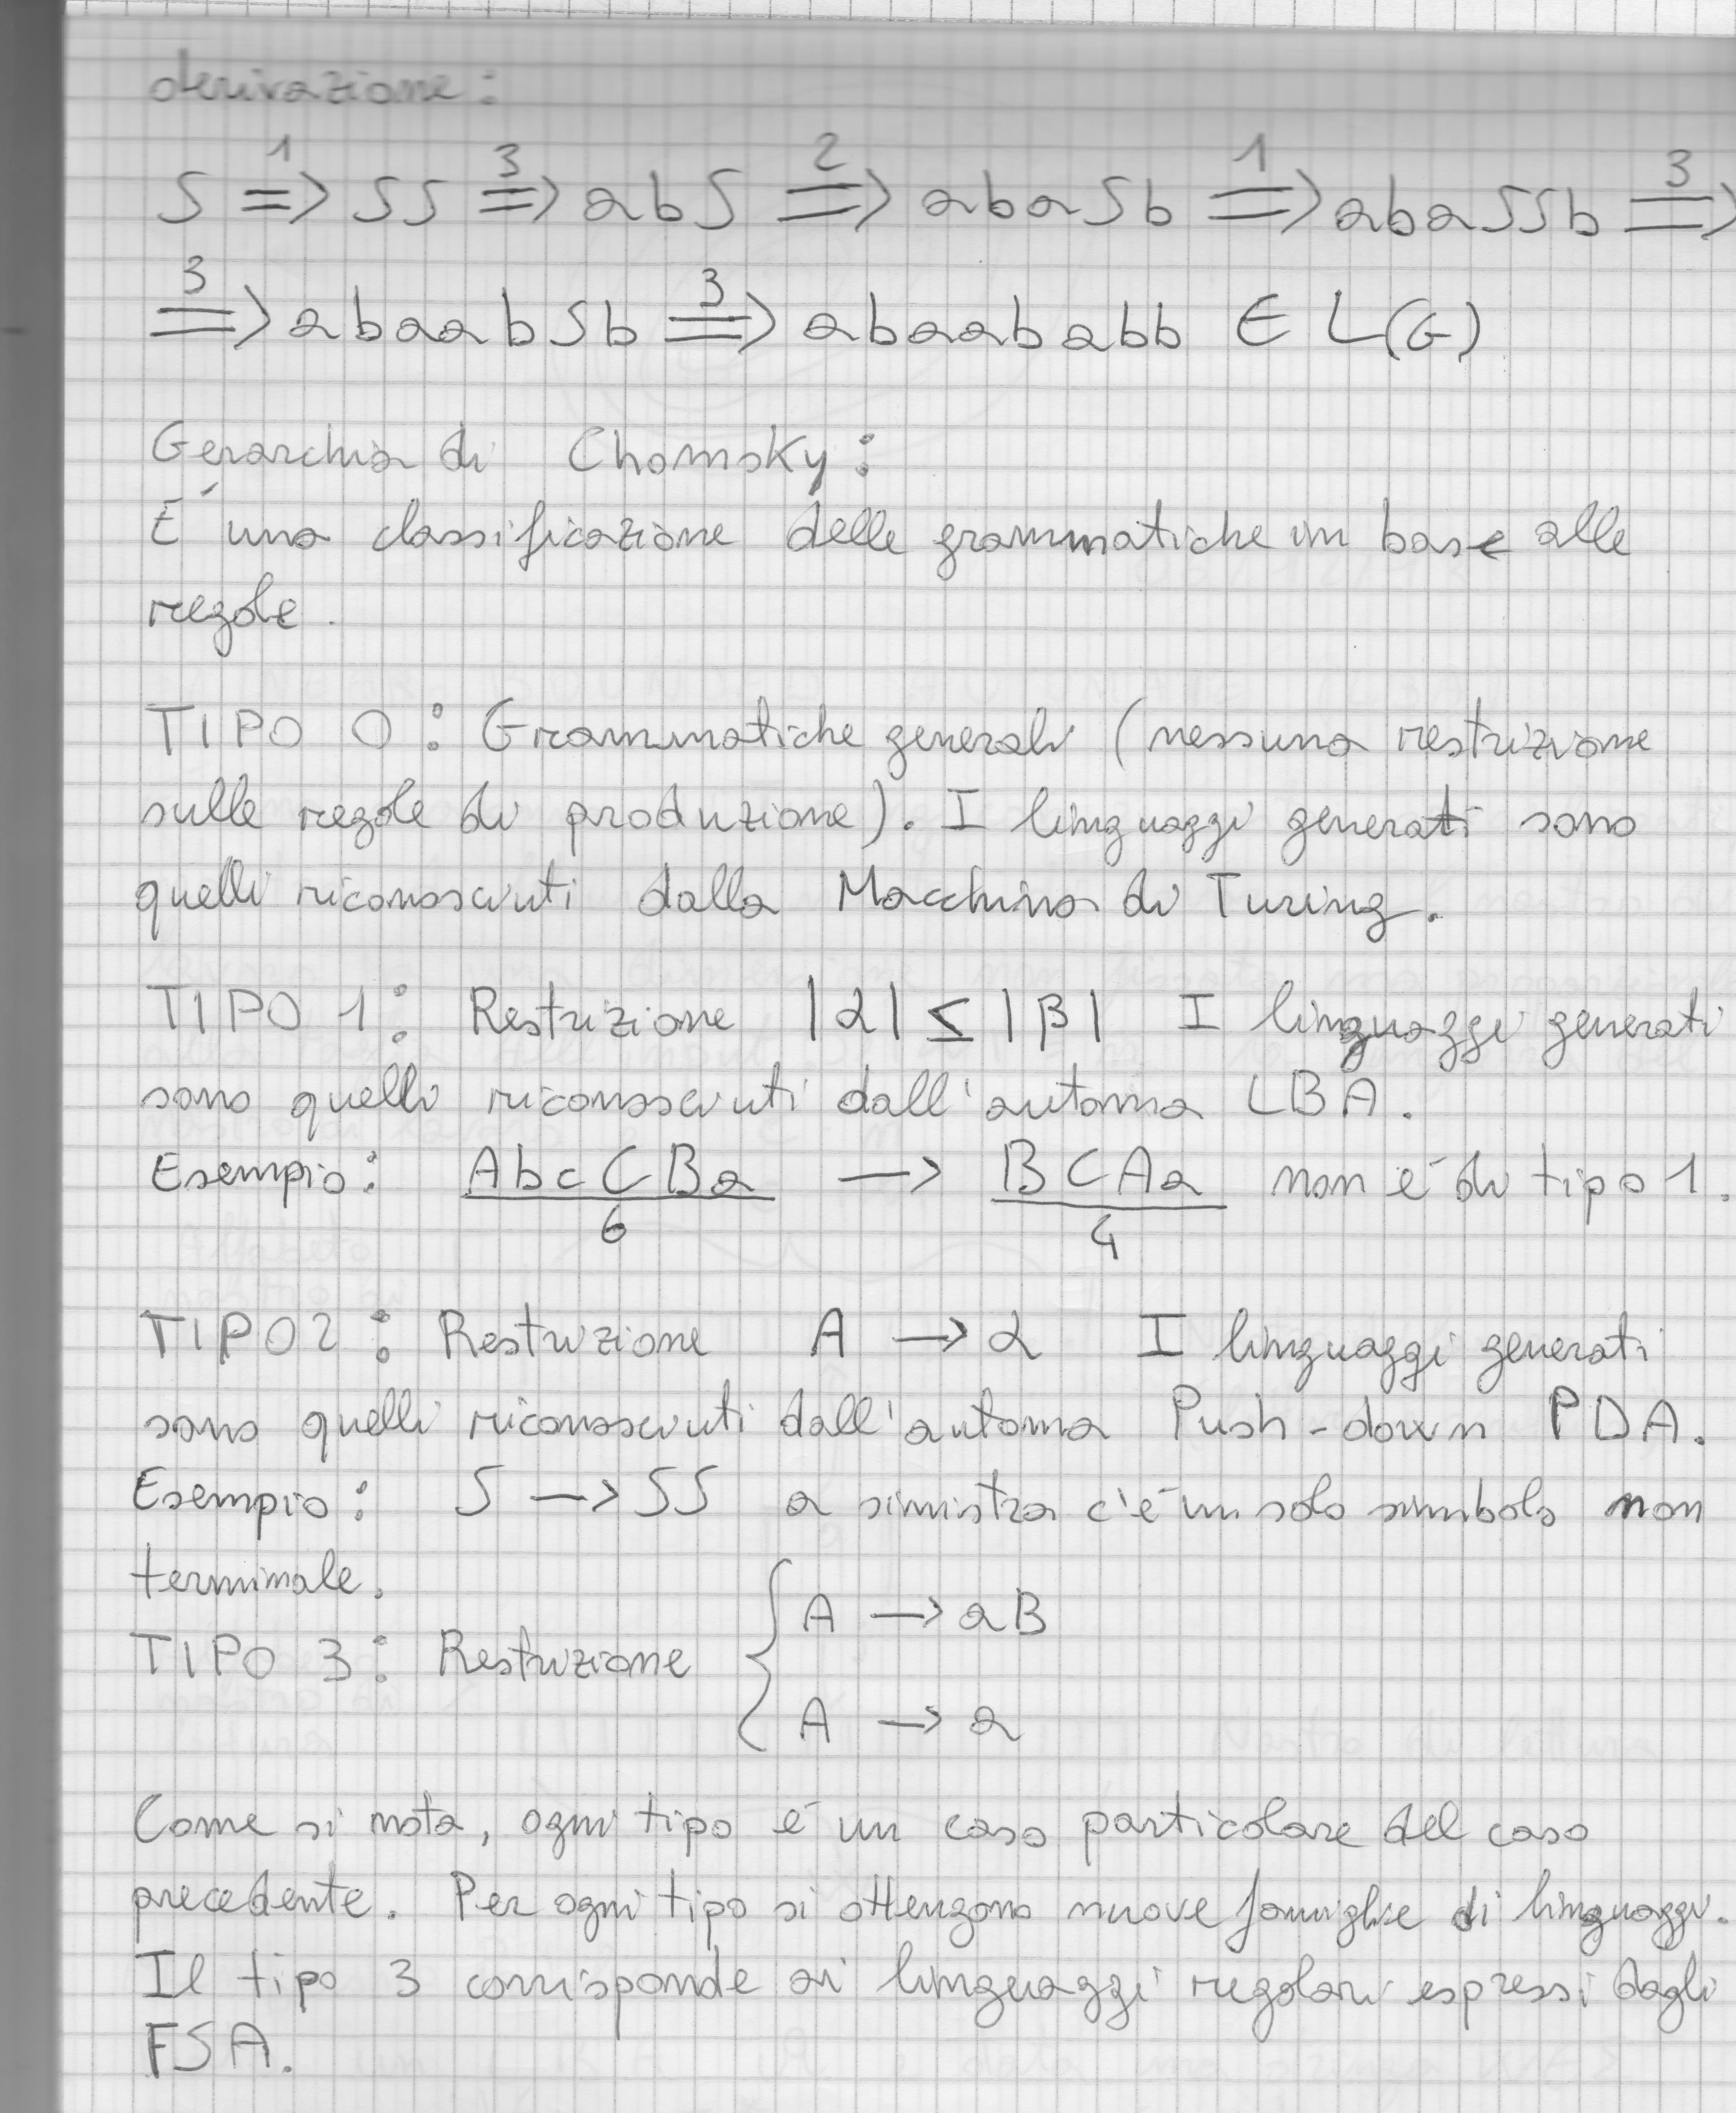 derivazione:
S =1=> SS =3=> abS =2=> abaSb =1=> abaSSb =3=>
=3=> abaabSb =3=> abaababb ∈ L(G)
Gerarchia di Chomsky:
È una classificazione delle grammatiche in base alle
regole.
TIPO 0: Grammatiche generali (nessuna restrizione
sulle regole di produzione). I linguaggi generati sono
quelli riconosciuti dalla Macchina di Turing.
TIPO 1: Restrizione |α| ≤ |β| I linguaggi generati
sono quelli riconosciuti dall'automa LBA.
Esempio: AbcCBa → BCAa non è di tipo 1.
6 4
TIPO 2: Restrizione A → α I linguaggi generati
sono quelli riconosciuti dall'automa Push-down PDA.
Esempio: S → SS a sinistra c'è un solo simbolo non
terminale.
A → aB
TIPO 3: Restrizione {
A → a
Come si nota, ogni tipo è un caso particolare del caso
precedente. Per ogni tipo si ottengono nuove famiglie di linguaggi.
Il tipo 3 corrisponde ai linguaggi regolari espressi dagli
FSA.